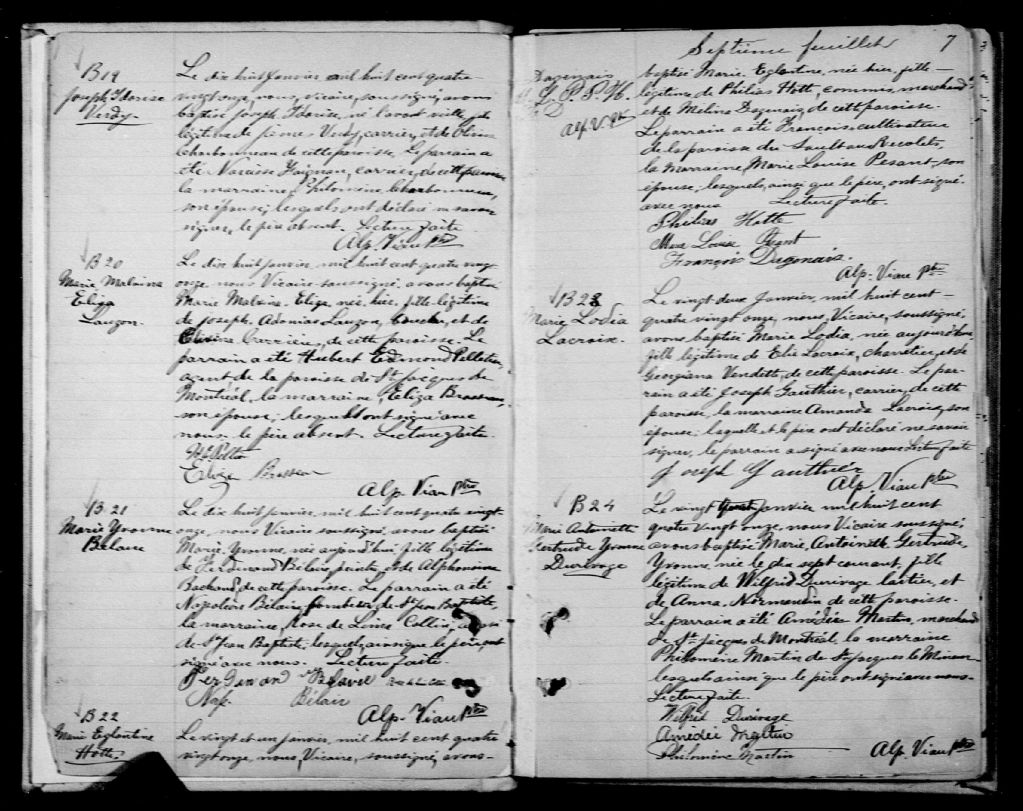 B19
Joseph Idorise
Verdy
Le dix huit Janvier mil huit cent quatre
vingt onze, nous, vicaire, soussigné, avons
baptisé Joseph né l'avant veille, fils
légitime de Verdy, carrier, et de
Charbonneau de cette paroisse. Le parrain a
été Narcisse carrier, de cette paroisse
la marraine, Philomène Charbonneau,
son épouse, lesquels ont déclaré ne savoir
signer, le père absent. Lecture faite
Alp. Viau Ptre
B20
Marie Malvina
Eliza
Lauzon.
Le dix huit janvier, mil huit cent quatre vingt
onze, nous Vicaire soussigné, avons baptisé
Marie Malvina Eliza, née hier, fille légitime
de Joseph Adonias Lauzon, et de
Carrière, de cette paroisse. Le
parrain a été Hubert Edmond Pelletier,
agent de la paroisse de St Jacques de
Montréal, la marraine Eliza Brosseau,
son épouse, lesquels ont signé avec
nous. le père absent. Lecture faite.
Eliza Brosseau
Alp. Viau Ptre
B.21
Marie Yvonne
Bélair
Le dix huit janvier, mil huit cent quatre vingt
onze, nous Vicaire soussigné, avons baptisé
Marie, Yvonne, née aujourd'hui, fille légitime
de Ferdinand Bélair, peintre, et de Alphonsine
Bachand, de cette paroisse. Le parrain a été
Napoléon Bélair, de St Jean Baptiste,
la marraine, Rose de Lima Collin,
de St Jean Baptiste, lesquels, ainsi que le père, ont
signé avec nous. Lecture faite.
Ferdinand Belair
Nap. Bélair
Alp. Viau Ptre
B22
Marie Eglantine
Hotte
Le vingt et un janvier, mil huit cent quatre
vingt onze, nous, Vicaire, soussigné, avons
Septième feuillet 7
Dagenais
Alp. V. Ptre
baptisé Marie. Eglantine, née hier, fille
légitime de Philias Hotte, commis, marchand
et de Mélina Dagenais, de cette paroisse.
Le parrain a été François, cultivateur
de la paroisse du Sault au Récollet,
la marraine, Marie Louise Pesant, son
épouse, lesquels, ainsi que le père, ont signé
avec nous Lecture faite.
Philias Hotte
Marie Louise Pesant
François Dagenais.
Alp. Viau Ptre
B23
Marie Lodia
Lacroix.
Le vingt deux Janvier, mil huit cent
quatre vingt onze, nous, Vicaire, soussigné,
avons baptisé Marie Lodia, née aujourd'hui,
fille légitime de Elie Lacroix, charretier, et de
Georgiana Vendette, de cette paroisse. Le par-
rain a été Joseph Gauthier, carrier, de cette
paroisse, la marraine Amanda Lacroix, son
épouse, laquelle et le père ont déclaré ne savoir
signer, le parrain a signé avec nous Lecture faite
Joseph Gauthier
Alp. Viau Ptre
B24
Marie Antoinette
Gertrude Yvonne
Durivage
Le vingt janvier mil huit cent
quatre vingt onze, nous Vicaire soussigné,
avons baptisé Marie, Antoinette Gertrude,
Yvonne, née le dix sept courant, fille
légitime de Wilfrid Durivage laitier, et
de Anna Normandin de cette paroisse.
Le parrain a été Amédée Martin, marchand
de St Jacques de Montréal, la marraine
Philomène Martin de St Jacques le Mineur
lesquels ainsi que le père ont signé avec nous.
Lecture faite.
Wilfrid Durivage
Amédée Martin
Philomène Martin Alp. Viau Ptre